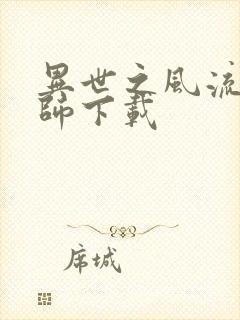 異世之風流
師下載
席城